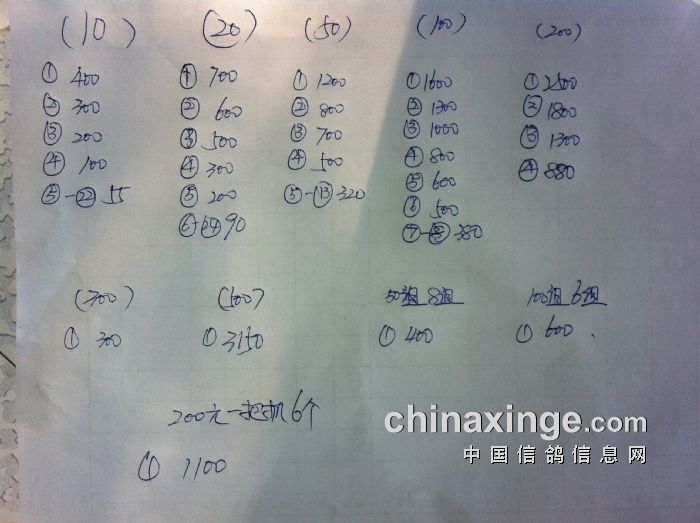 (10) (20) (50) (100) (200)
① 400 ① 700 ① 1200 ① 1600 ① 2500
② 300 ② 600 ② 800 ② 1300 ② 1800
③ 200 ③ 500 ③ 700 ③ 1000 ③ 1300
④ 100 ④ 300 ④ 500 ④ 800 ④ 880
⑤-㉒ 55 ⑤ 200 ⑤-⑬ 320 ⑤ 600
⑥ 90 ⑥ 500
⑦ 380
(300) (500) 50组8组 100组6组
① 300 ① 3150 ① 400 ① 600
200元一把抓6个
① 1100
chinaxinge.com
中国信鸽信息网